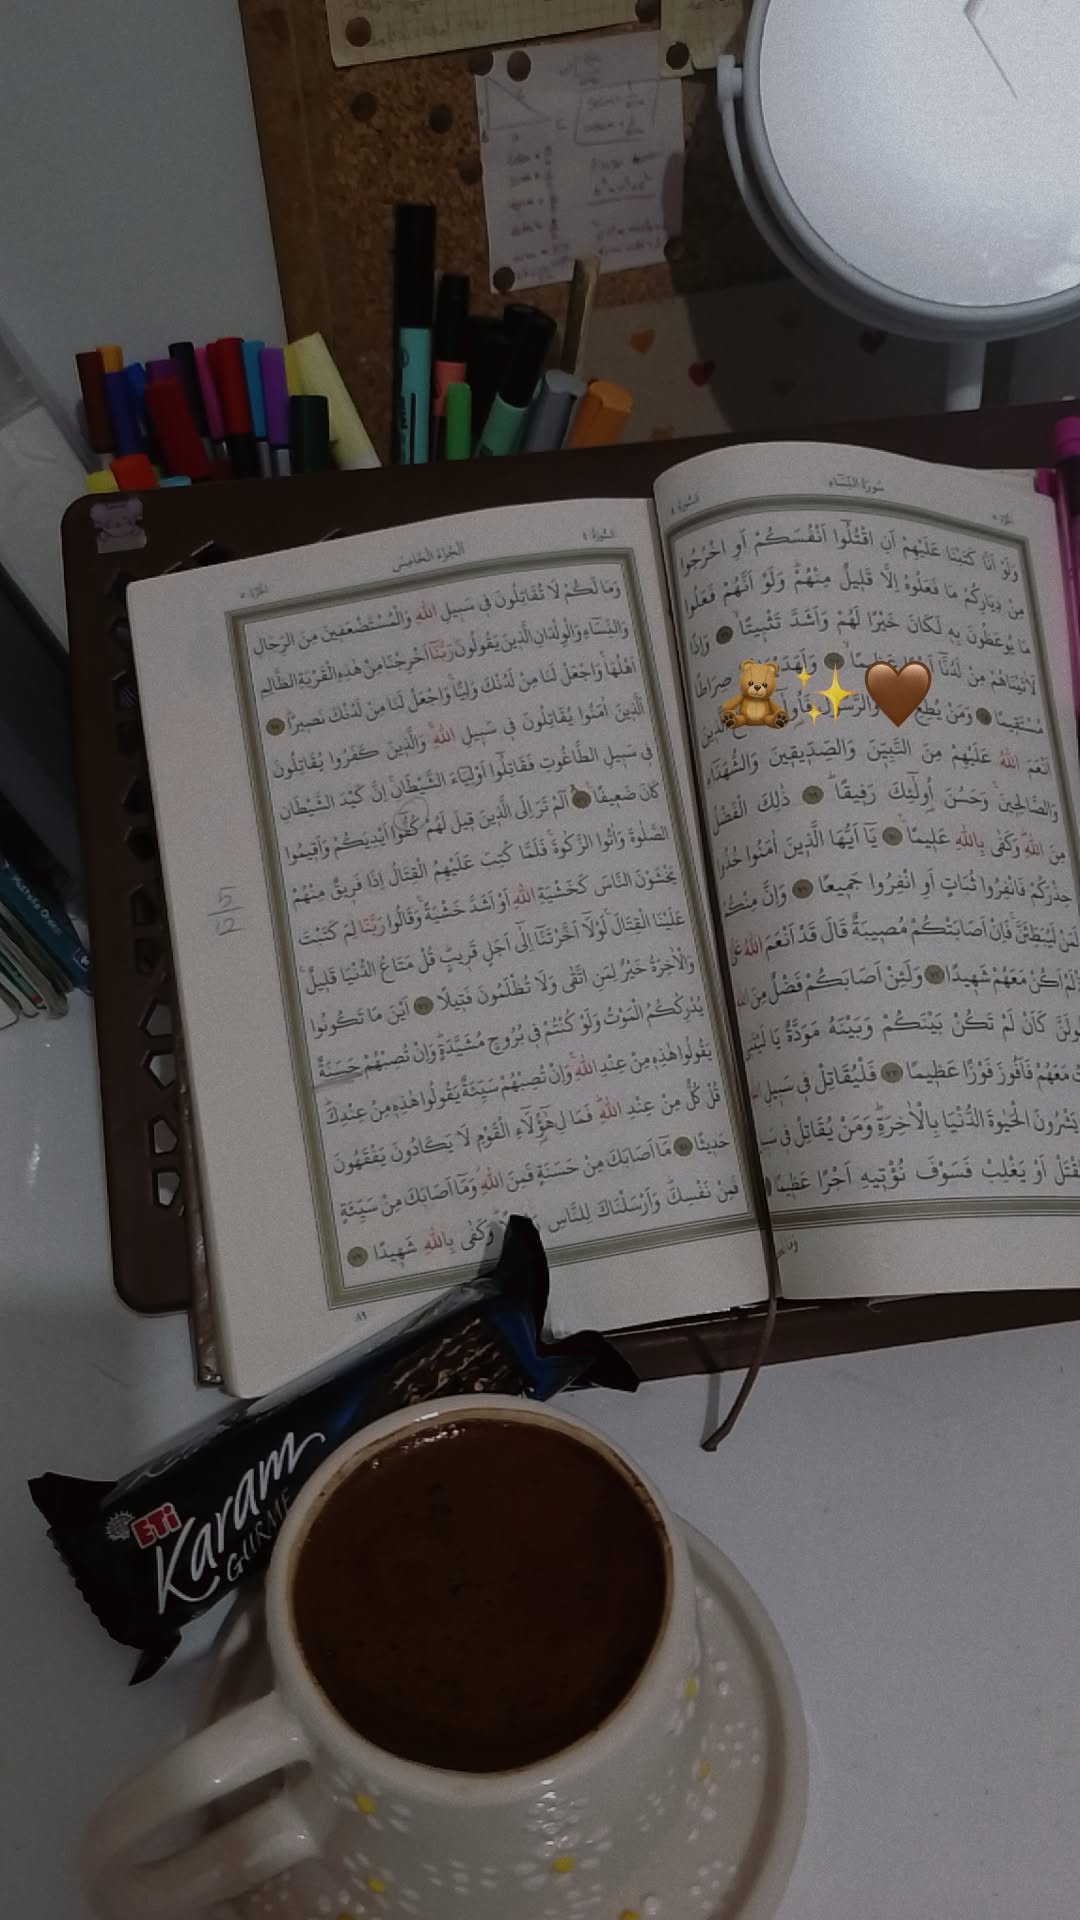 سُورَةُ النِّسَاءِ
وَلَوْ اَنَّا كَتَبْنَا عَلَيْهِمْ اَنِ اقْتُلُٓوا اَنْفُسَكُمْ اَوِ اخْرُجُوا
مِنْ دِيَارِكُمْ مَا فَعَلُوهُ اِلَّا قَلِيلٌ مِنْهُمْ وَلَوْ اَنَّهُمْ فَعَلُوا
مَا يُوعَظُونَ بِهِ لَكَانَ خَيْرًا لَهُمْ وَاَشَدَّ تَثْبِيتًا ٦٦ وَاِذًا
لَاٰتَيْنَاهُمْ مِنْ لَدُنَّٓا اَجْرًا عَظِيمًا ٦٧ وَلَهَدَيْنَاهُمْ صِرَاطًا
مُسْتَقِيمًا ٦٨ وَمَنْ يُطِعِ وَالرَّسُولَ الَّذِينَ
اَنْعَمَ اللّٰهُ عَلَيْهِمْ مِنَ النَّبِيّٖنَ وَالصِّدِّيقِينَ وَالشُّهَدَٓاءِ
وَالصَّالِحِينَ وَحَسُنَ اُولٰٓئِكَ رَفِيقًا ٦٩ ذٰلِكَ الْفَضْلُ
مِنَ اللّٰهِ وَكَفٰى بِاللّٰهِ عَلِيمًا ٧٠ يَٓا اَيُّهَا الَّذِينَ اٰمَنُوا خُذُوا
حِذْرَكُمْ فَانْفِرُوا ثُبَاتٍ اَوِ انْفِرُوا جَمِيعًا ٧١ وَاِنَّ مِنْكُمْ
لَمَنْ لَيُبَطِّئَنَّ فَاِنْ اَصَابَتْكُمْ مُصِيبَةٌ قَالَ قَدْ اَنْعَمَ اللّٰهُ
لَمْ اَكُنْ مَعَهُمْ شَهِيدًا ٧٢ وَلَئِنْ اَصَابَكُمْ فَضْلٌ مِنَ
كَاَنْ لَمْ تَكُنْ بَيْنَكُمْ وَبَيْنَهُ مَوَدَّةٌ يَا
مَعَهُمْ فَاَفُوزَ فَوْزًا عَظِيمًا ٧٣ فَلْيُقَاتِلْ فِى سَبِيلِ
يَشْرُونَ الْحَيٰوةَ الدُّنْيَا بِالْاٰخِرَةِ وَمَنْ يُقَاتِلْ فِى
اَوْ يَغْلِبْ فَسَوْفَ نُؤْتِيهِ اَجْرًا عَظِيمًا
اَلْجُزْءُ الْخَامِسُ
وَمَا لَكُمْ لَا تُقَاتِلُونَ فِى سَبِيلِ اللّٰهِ وَالْمُسْتَضْعَفِينَ مِنَ الرِّجَالِ
وَالنِّسَٓاءِ وَالْوِلْدَانِ الَّذِينَ يَقُولُونَ رَبَّنَٓا اَخْرِجْنَا مِنْ هٰذِهِ الْقَرْيَةِ الظَّالِمِ
اَهْلُهَا وَاجْعَلْ لَنَا مِنْ لَدُنْكَ وَلِيًّا وَاجْعَلْ لَنَا مِنْ لَدُنْكَ نَصِيرًا ٧٥
اَلَّذِينَ اٰمَنُوا يُقَاتِلُونَ فِى سَبِيلِ اللّٰهِ وَالَّذِينَ كَفَرُوا يُقَاتِلُونَ
فِى سَبِيلِ الطَّاغُوتِ فَقَاتِلُٓوا اَوْلِيَٓاءَ الشَّيْطَانِ اِنَّ كَيْدَ الشَّيْطَانِ
كَانَ ضَعِيفًا ٧٦ اَلَمْ تَرَ اِلَى الَّذِينَ قِيلَ لَهُمْ كُفُّٓوا اَيْدِيَكُمْ وَاَقِيمُوا
الصَّلٰوةَ وَاٰتُوا الزَّكٰوةَ فَلَمَّا كُتِبَ عَلَيْهِمُ الْقِتَالُ اِذَا فَرِيقٌ مِنْهُمْ
يَخْشَوْنَ النَّاسَ كَخَشْيَةِ اللّٰهِ اَوْ اَشَدَّ خَشْيَةً وَقَالُوا رَبَّنَا لِمَ كَتَبْتَ
عَلَيْنَا الْقِتَالَ لَوْلَٓا اَخَّرْتَنَٓا اِلٰٓى اَجَلٍ قَرِيبٍ قُلْ مَتَاعُ الدُّنْيَا قَلِيلٌ
وَالْاٰخِرَةُ خَيْرٌ لِمَنِ اتَّقٰى وَلَا تُظْلَمُونَ فَتِيلًا ٧٧ اَيْنَ مَا تَكُونُوا
يُدْرِكْكُمُ الْمَوْتُ وَلَوْ كُنْتُمْ فِى بُرُوجٍ مُشَيَّدَةٍ وَاِنْ تُصِبْهُمْ حَسَنَةٌ
يَقُولُوا هٰذِهِ مِنْ عِنْدِ اللّٰهِ وَاِنْ تُصِبْهُمْ سَيِّئَةٌ يَقُولُوا هٰذِهِ مِنْ عِنْدِكَ
قُلْ كُلٌّ مِنْ عِنْدِ اللّٰهِ فَمَا لِ هٰٓؤُلَٓاءِ الْقَوْمِ لَا يَكَادُونَ يَفْقَهُونَ
حَدِيثًا ٧٨ مَٓا اَصَابَكَ مِنْ حَسَنَةٍ فَمِنَ اللّٰهِ وَمَٓا اَصَابَكَ مِنْ سَيِّئَةٍ
فَمِنْ نَفْسِكَ وَاَرْسَلْنَاكَ لِلنَّاسِ وَكَفٰى بِاللّٰهِ شَهِيدًا ٧٩
٨٩
5
12
ETi
Karam
GURME